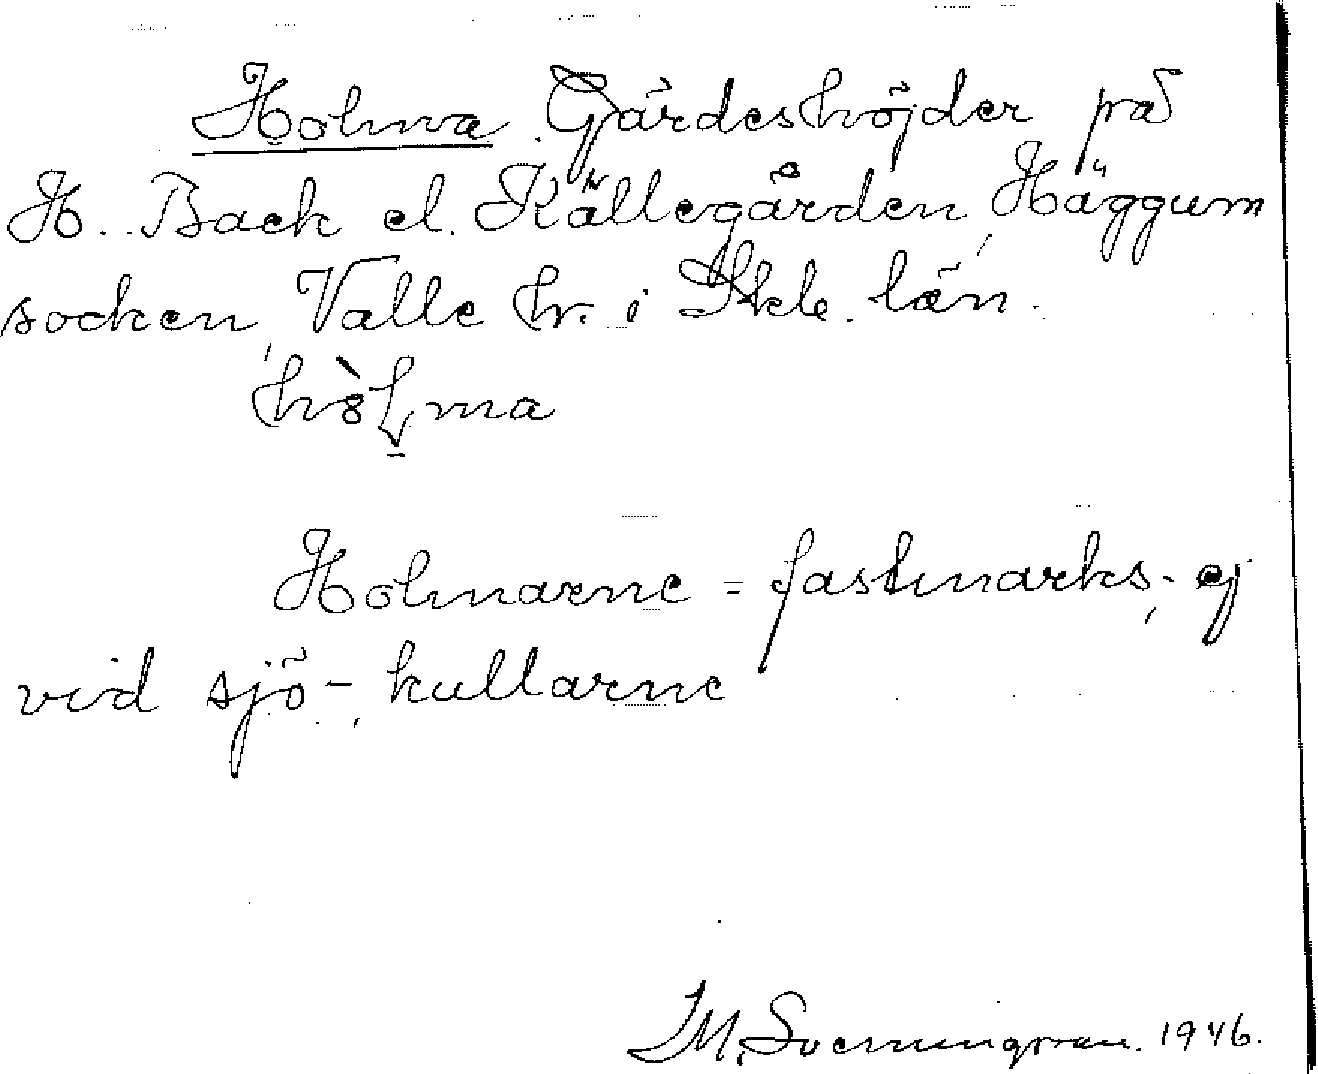 Holma Gärdeshöjder på
H. Back el. Källegården, Häggum
socken, Valle hr. i Skb. län.
Holmarne = fastmarks-, ej
vid sjö-, kullarne
J.M. Svenningsson. 1946.